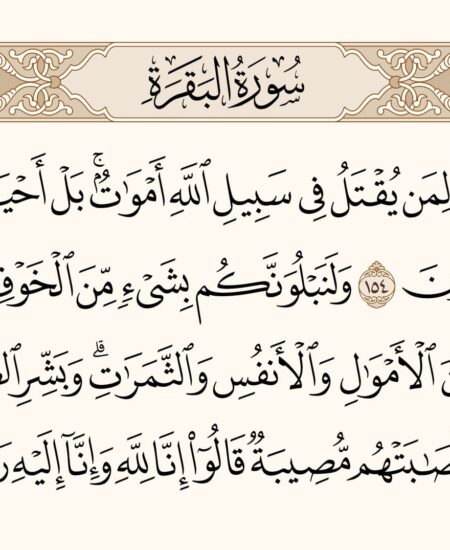 سُورَةُ البَقَرَةِ
لِمَن يُقْتَلُ فِى سَبِيلِ ٱللَّهِ أَمْوَٰتٌۢ ۚ بَلْ أَحْيَ
نَ ١٥٤ وَلَنَبْلُوَنَّكُم بِشَىْءٍ مِّنَ ٱلْخَوْفِ
نَ ٱلْأَمْوَٰلِ وَٱلْأَنفُسِ وَٱلثَّمَرَٰتِ ۗ وَبَشِّرِ ٱل
صَٰبَتْهُم مُّصِيبَةٌ قَالُوٓا۟ إِنَّا لِلَّهِ وَإِنَّآ إِلَيْهِ رَ